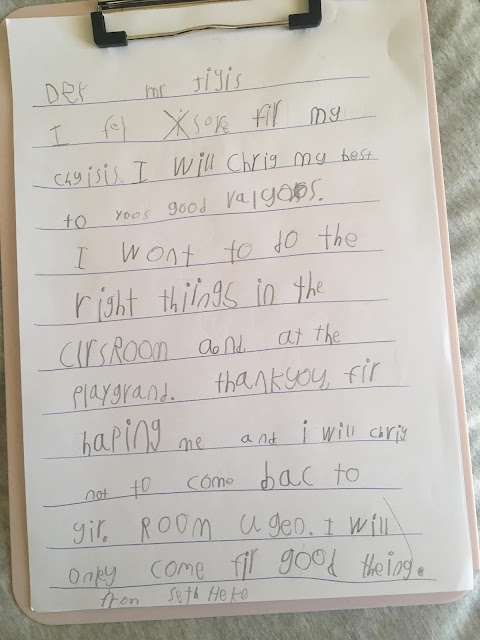 Der mr Jijis
I fel sore fir my
chyisis. I will chrig my best
to yoos good valyoos.
I wont to do the
right thiings in the
ClrsRoom aond at the
Playgrand. thankyou fir
haping me and i will chrig
not to come bac to
yir. Room ugen. I will
onky come fir good theing.
fron Seth Heke